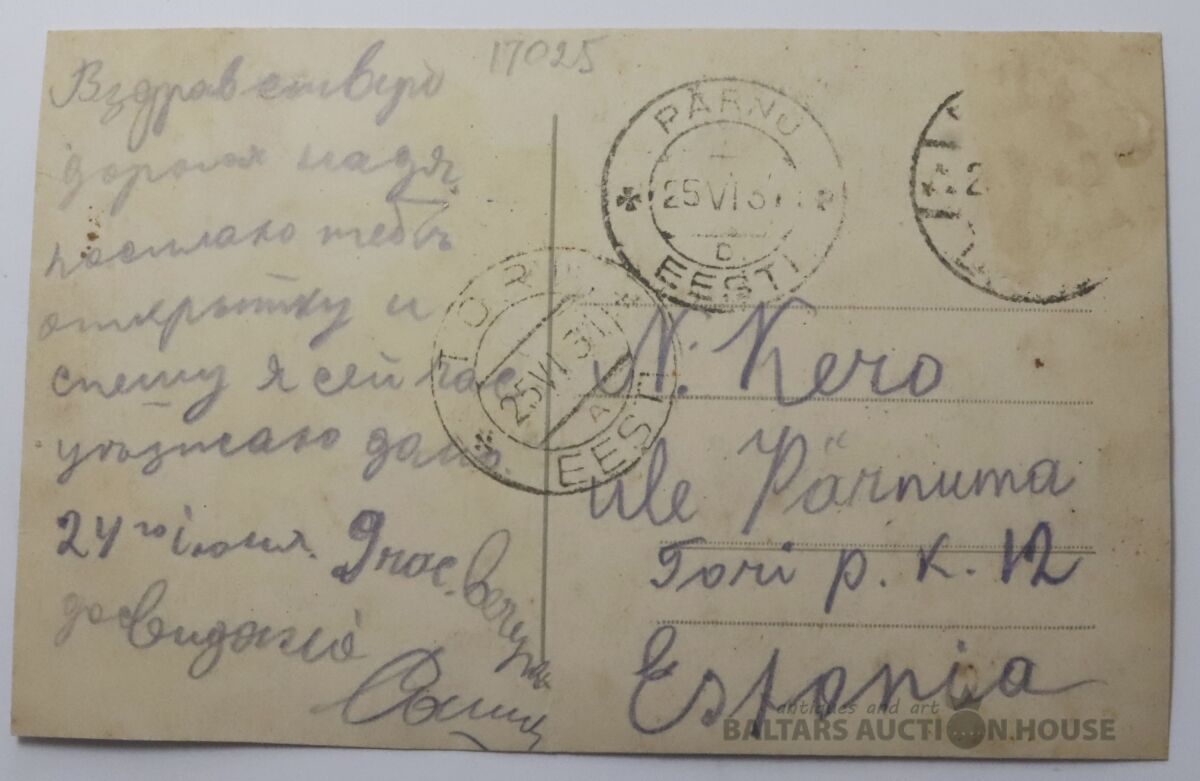 17025
Вздравствуй
дорогая надя
посилаю тебѣ
открытку и
спешу я сейчас
уѣзжаю
24го іюня. 9 час. вечера
до видания
Саша
PÄRNU
25 VI 31
D
EESTI
TORI
25 VI 31
A
EESTI
N. Kero
üle Pärnuma
Tori p. k. 12
Estonia
antiques and art
BALTARS AUCTION HOUSE